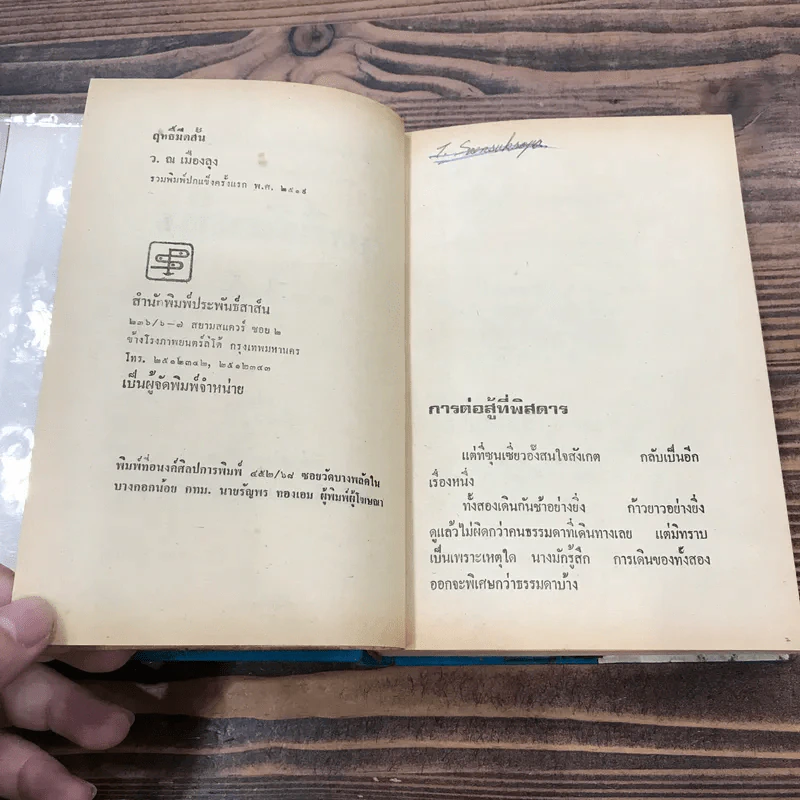 ฤทธิ์มีดสั้น
ว. ณ เมืองลุง
รวมพิมพ์ปกแข็งครั้งแรก พ.ศ. ๒๕๑๙
สำนักพิมพ์ประพันธ์สาส์น
๒๓๖/๖-๗ สยามสแควร์ ซอย ๒
ข้างโรงภาพยนตร์ลิโด้ กรุงเทพมหานคร
โทร. ๒๕๑๒๓๔๒, ๒๕๑๒๓๔๓
เป็นผู้จัดพิมพ์จำหน่าย
พิมพ์ที่อนงค์ศิลปการพิมพ์ ๔๕๒/๖๘ ซอยวัดบางพลัดใน
บางกอกน้อย กทม. นายรัญพร ทองเอม ผู้พิมพ์ผู้โฆษณา
การต่อสู้ที่พิสดาร
แต่ที่ซุนเซี่ยวอั้งสนใจสังเกต กลับเป็นอีก
เรื่องหนึ่ง
ทั้งสองเดินกันช้าอย่างยิ่ง ก้าวยาวอย่างยิ่ง
ดูแล้วไม่ผิดกว่าคนธรรมดาที่เดินทางเลย แต่มิทราบ
เป็นเพราะเหตุใด นางมักรู้สึก การเดินของทั้งสอง
ออกจะพิเศษกว่าธรรมดาบ้าง